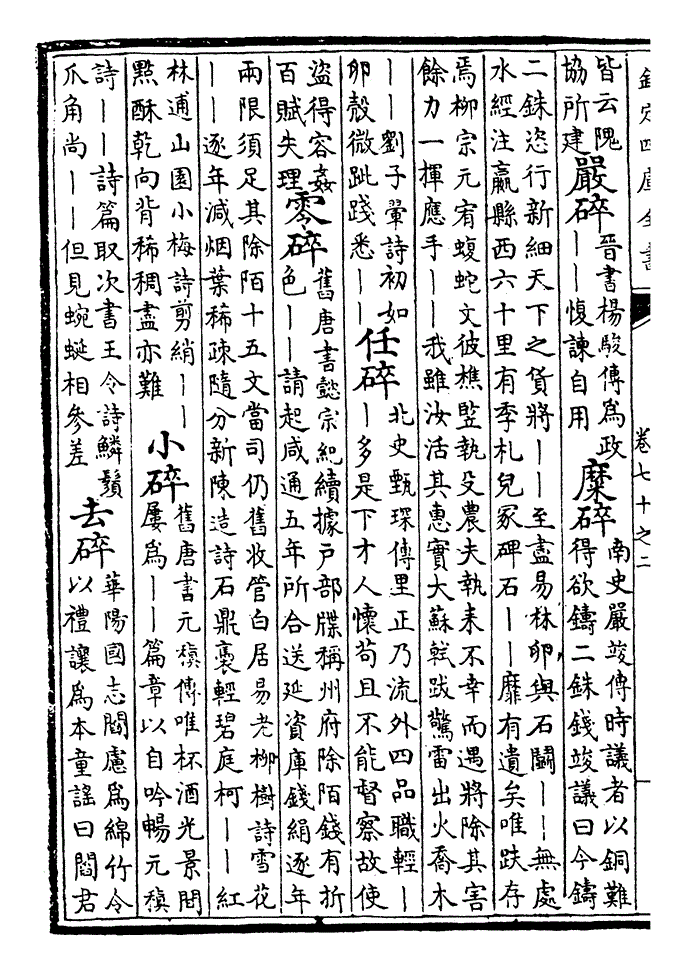 欽定四庫全書
卷七十之二
皆云隗
協所建
嚴碎
晉書楊駿傳為政
——愎諫自用
糜碎
南史嚴竣傳時議者以銅難
得欲鑄二銖錢竣議曰今鑄
二銖恣行新細天下之貨將——至盡易林卵與石鬭——無處
水經注嬴縣西六十里有季札兒冢碑石——靡有遺矣唯趺存
焉柳宗元宥蝮蛇文彼樵豎執殳農夫執耒不幸而遇將除其害
餘力一揮應手——我雖汝活其惠實大蘇軾跋驚雷出火喬木
——劉子翬詩初如
卵殼微跐踐悉——
任碎
北史甄琛傳里正乃流外四品職輕—
—多是下才人懷苟且不能督察故使
盜得容姦
百賦失理
零碎
舊唐書懿宗紀續據戶部牒稱州府除陌錢有折
色——請起咸通五年所合送延資庫錢絹逐年
兩限須足其除陌十五文當司仍舊收管白居易老柳樹詩雪花
——逐年減烟葉稀疎隨分新陳造詩石鼎裹輕碧庭柯——紅
林逋山園小梅詩剪綃——
點酥乾向背稀稠盡亦難
小碎
舊唐書元稹傳唯杯酒光景間
屢為——篇章以自吟暢元稹
詩——詩篇取次書王令詩鱗鬚
爪角尚——但見蜿蜒相參差
去碎
華陽國志閻慮為綿竹令
以禮讓為本童謠曰閻君